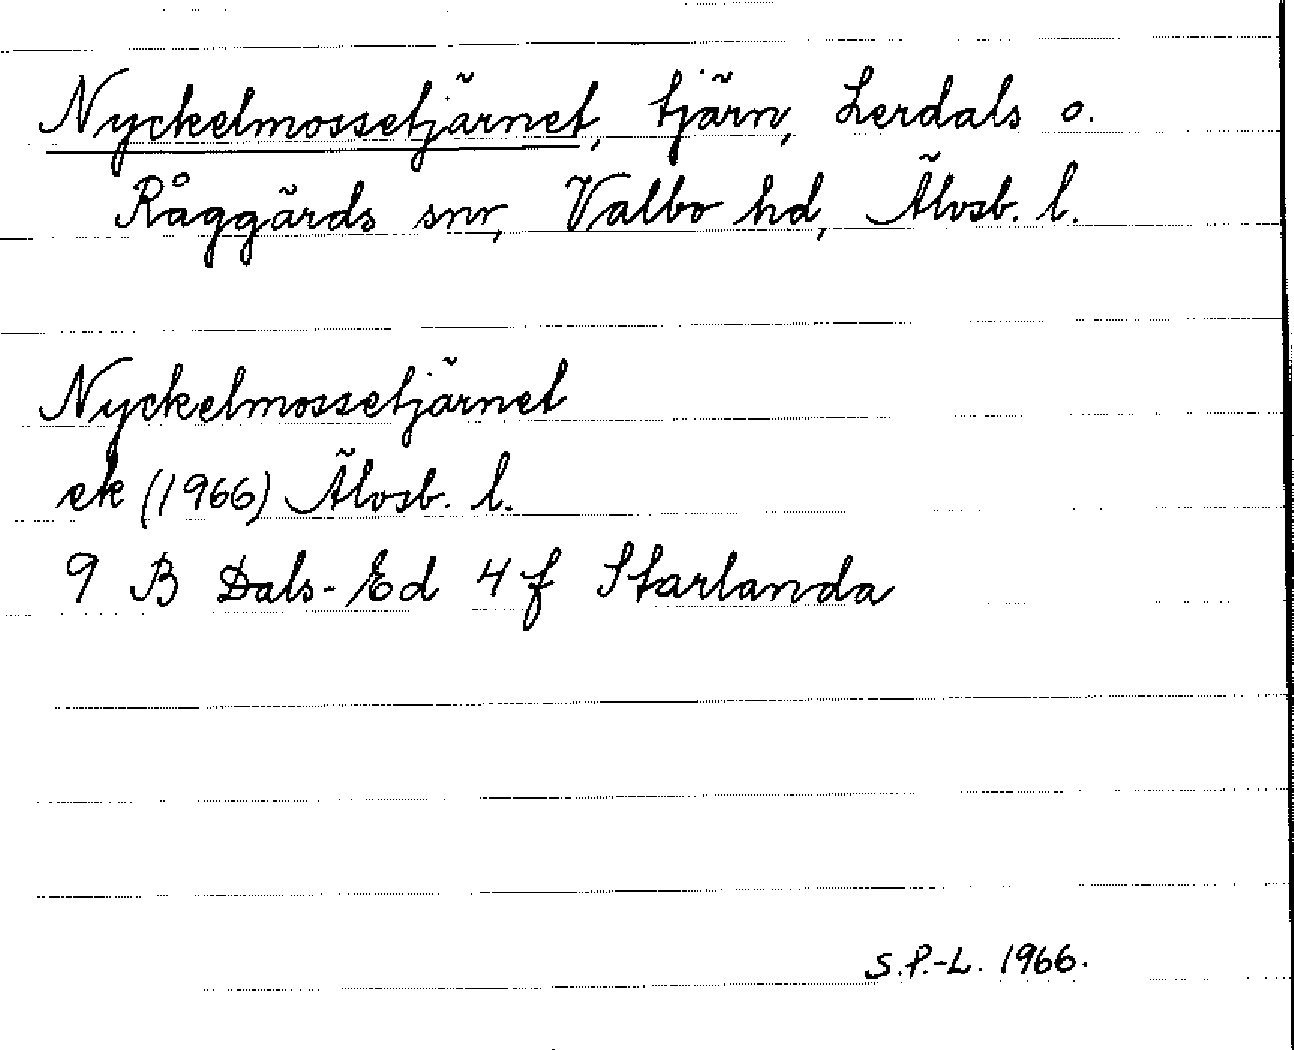 Nyckelmossetjärnet, tjärn, Lerdals o.
Råggärds snr, Valbo hd, Älvsb. l.
Nyckelmossetjärnet
ek (1966) Älvsb. l.
9 B Dals-Ed 4 f Starlanda
S.P.-L. 1966.